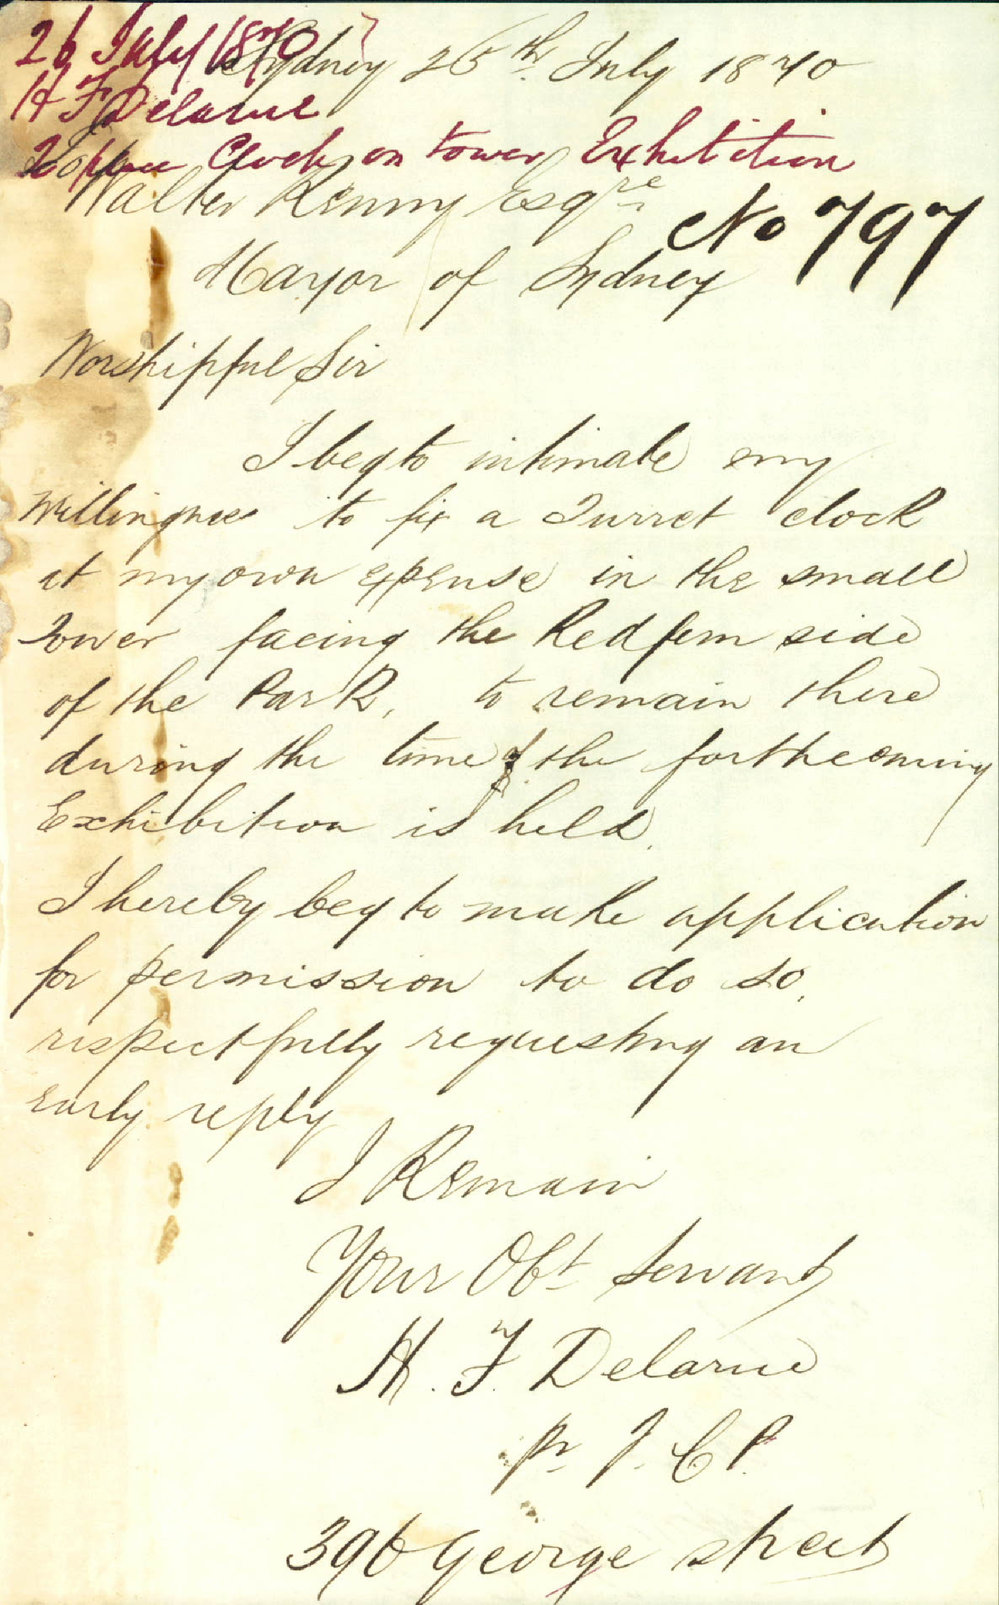 26 July 1870
Sydney 26th July 1870
H F Delarue
To place Clock on tower Exhibition
To
Walter Renny Esqre
No 797
Mayor of Sydney
Worshipful Sir
I beg to intimate my
Willingness to fix a Turret clock
at my own expense in the small
Tower facing the Redfern side
of the Park, to remain there
during the time of the forthcoming
Exhibition is held.
I hereby beg to make application
for permission to do so,
respectfully requesting an
early reply
I Remain
Your Obt Servant
H. F. Delarue
pr J. C P.
396 George street